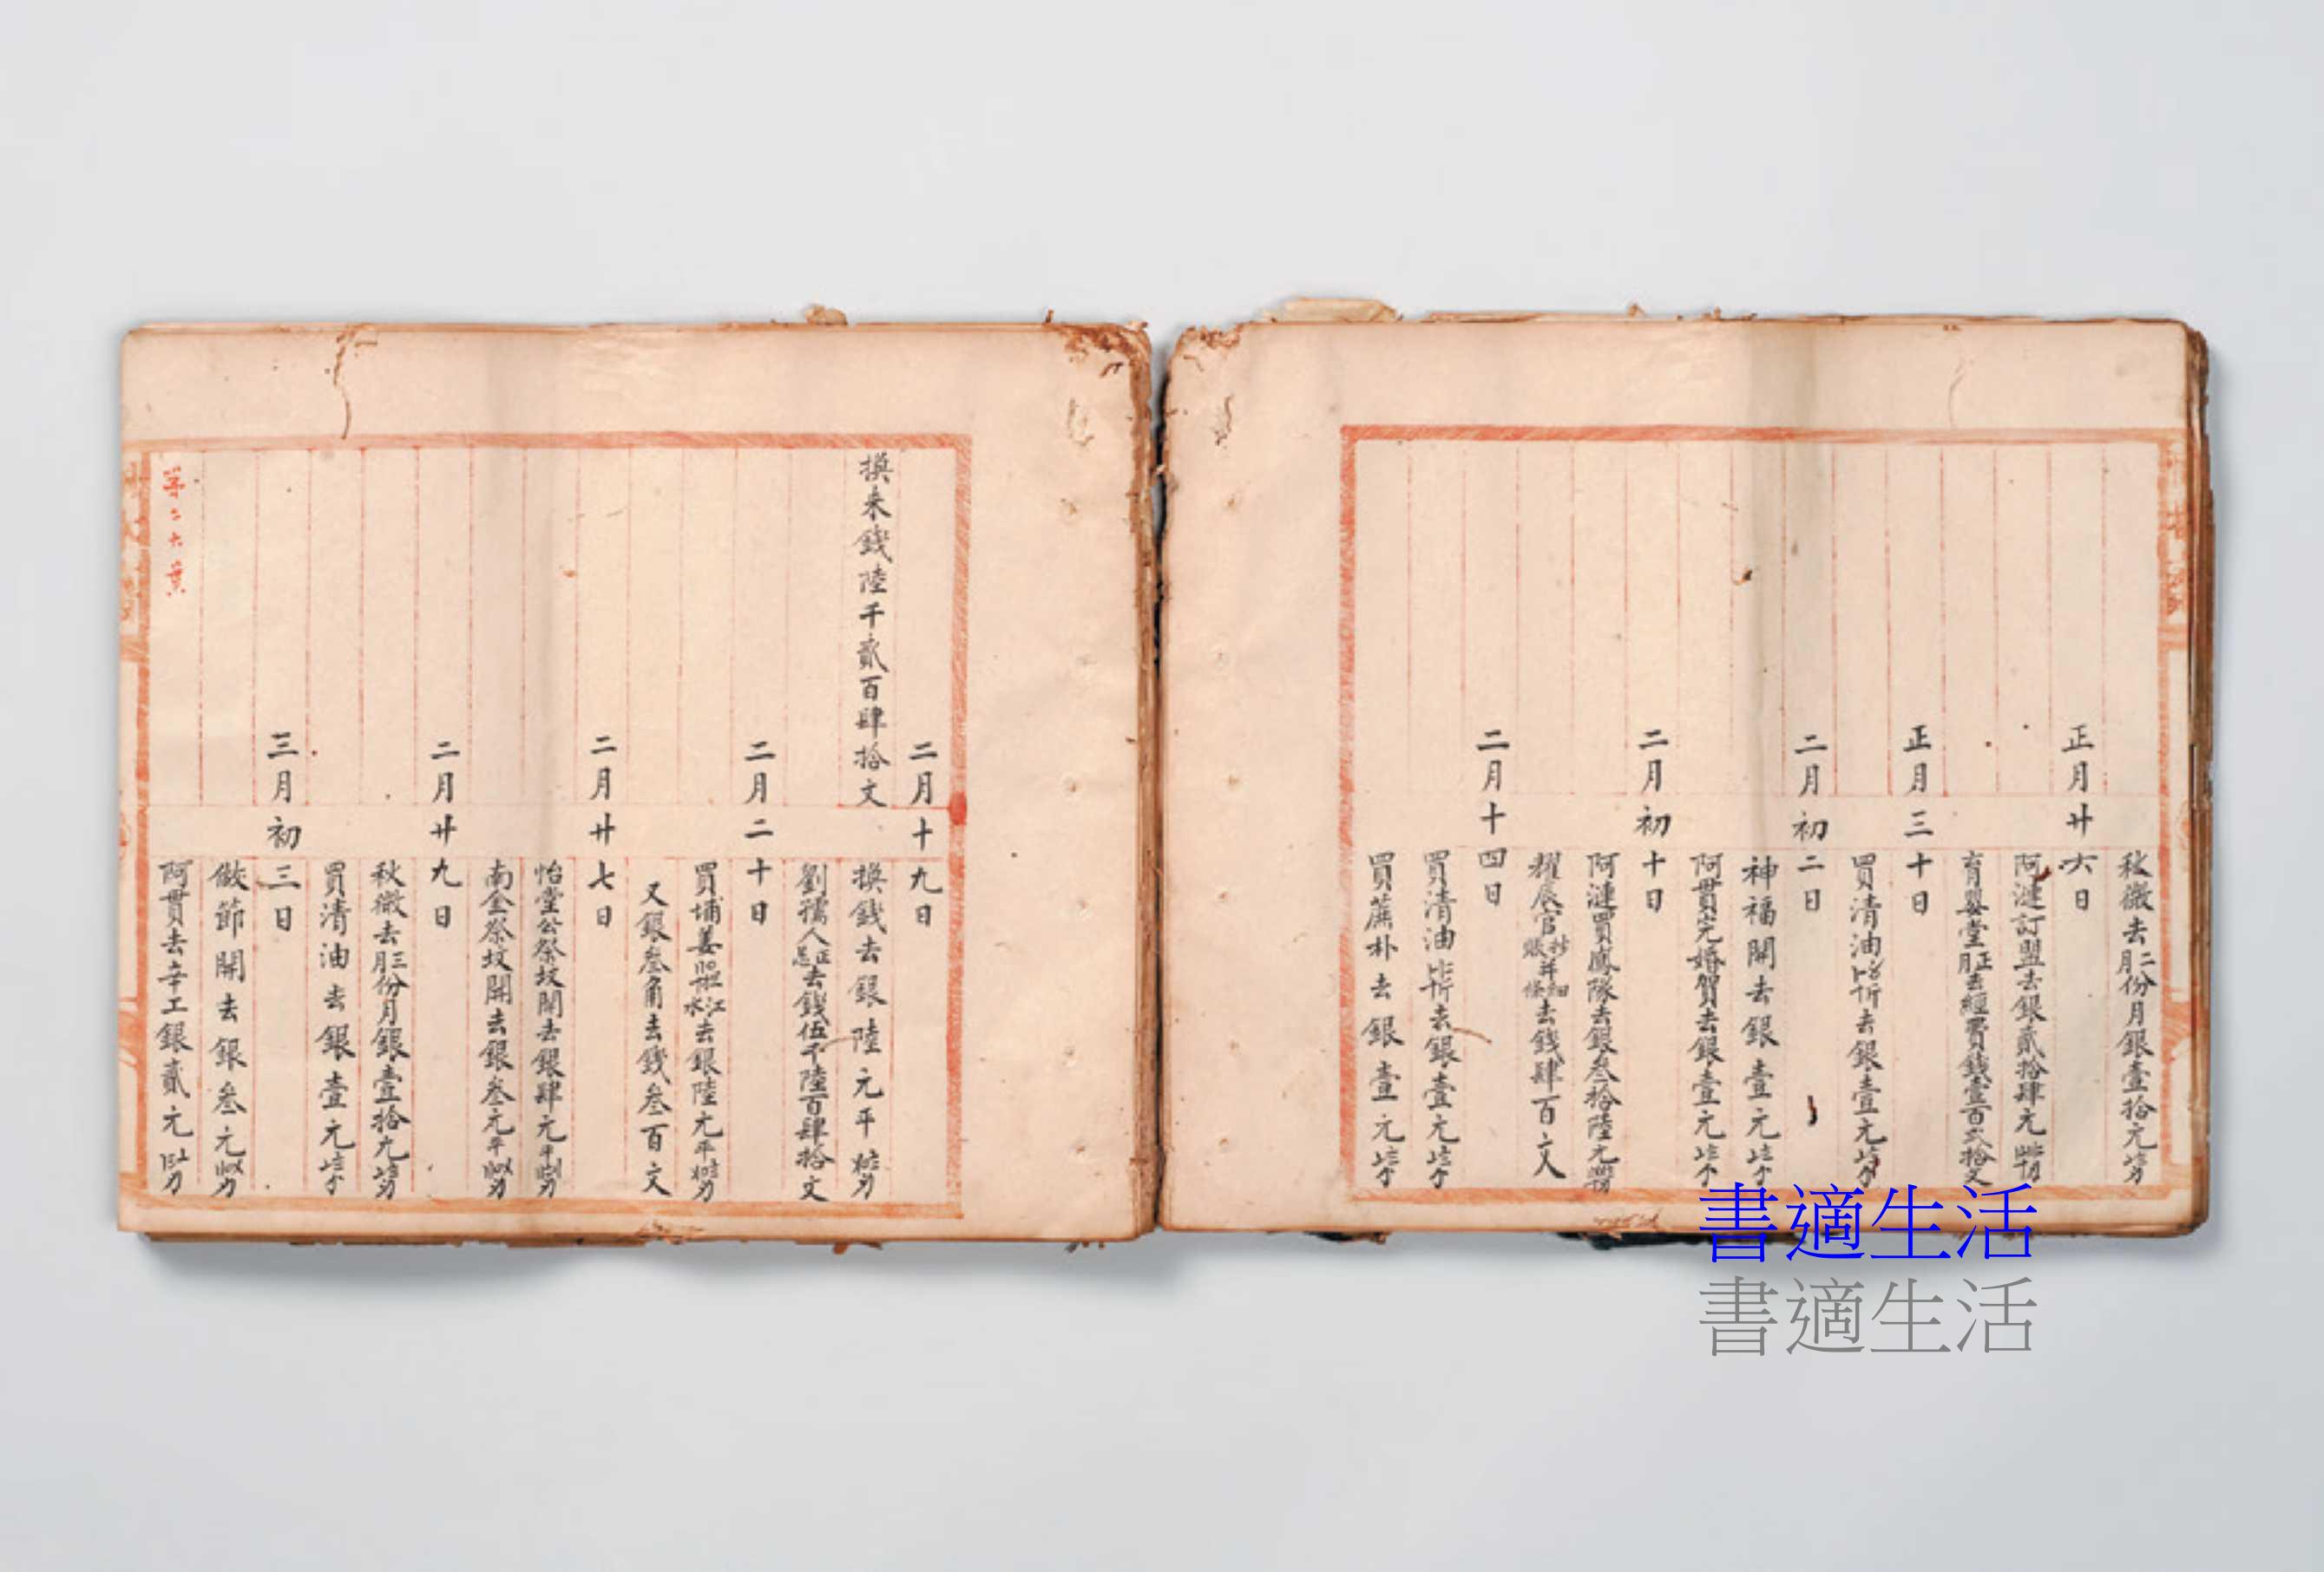 秋澂去二月份月銀壹拾元
正月廿六日
阿漣訂盟去銀貳拾肆元
育嬰堂正月去經費錢壹百貳拾文
正月三十日
買清油去銀壹元
二月初二日
神福開去銀壹元
阿貫完婚賀去銀壹元
二月初十日
阿漣買鳳隊去銀叁拾陸元
耀辰官抄賬并去錢肆百文
二月十四日
買清油去銀壹元
買蔗朴去銀壹元
二月十九日
換來錢陸千貳百肆拾文
換錢去銀陸元平
劉孺人正忌去錢伍千陸百肆拾文
二月二十日
買埔姜江水去銀陸元平
又銀叁角去錢叁百文
二月廿七日
怡堂公祭坟開去銀肆元平
南金祭坟開去銀叁元平
二月廿九日
秋澂去三月份月銀壹拾元
買清油去銀壹元
三月初三日
做節開去銀叁元
阿貫去辛工銀貳元
第二六葉
書適生活
書適生活